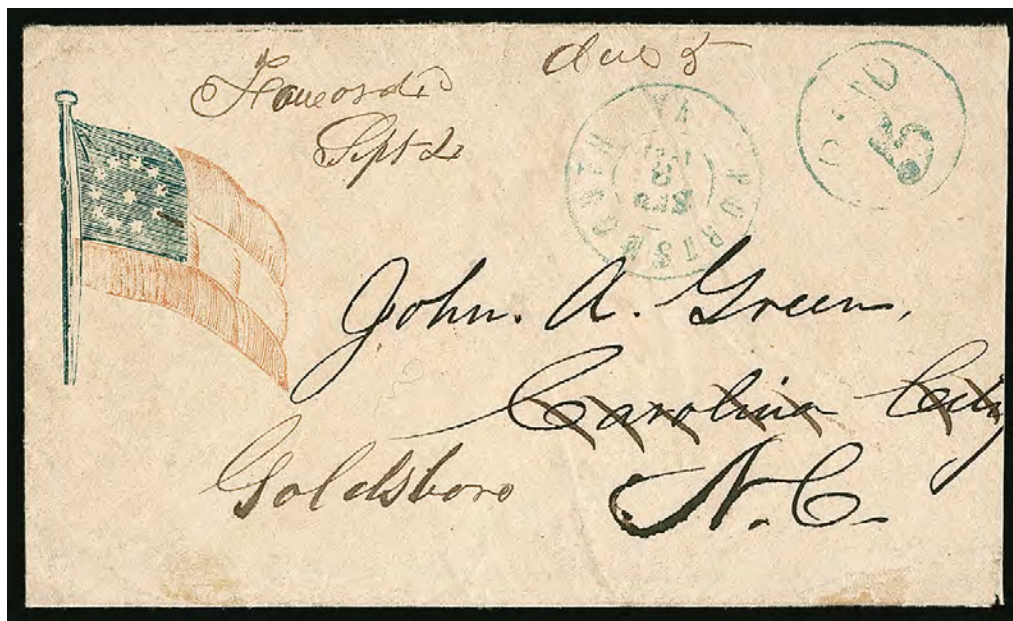 Forward
Sept 2
due 5
PORTSMOUTH VA
SEP
PAID
5
John. A. Green,
Carolina City
Goldsboro
N.C.